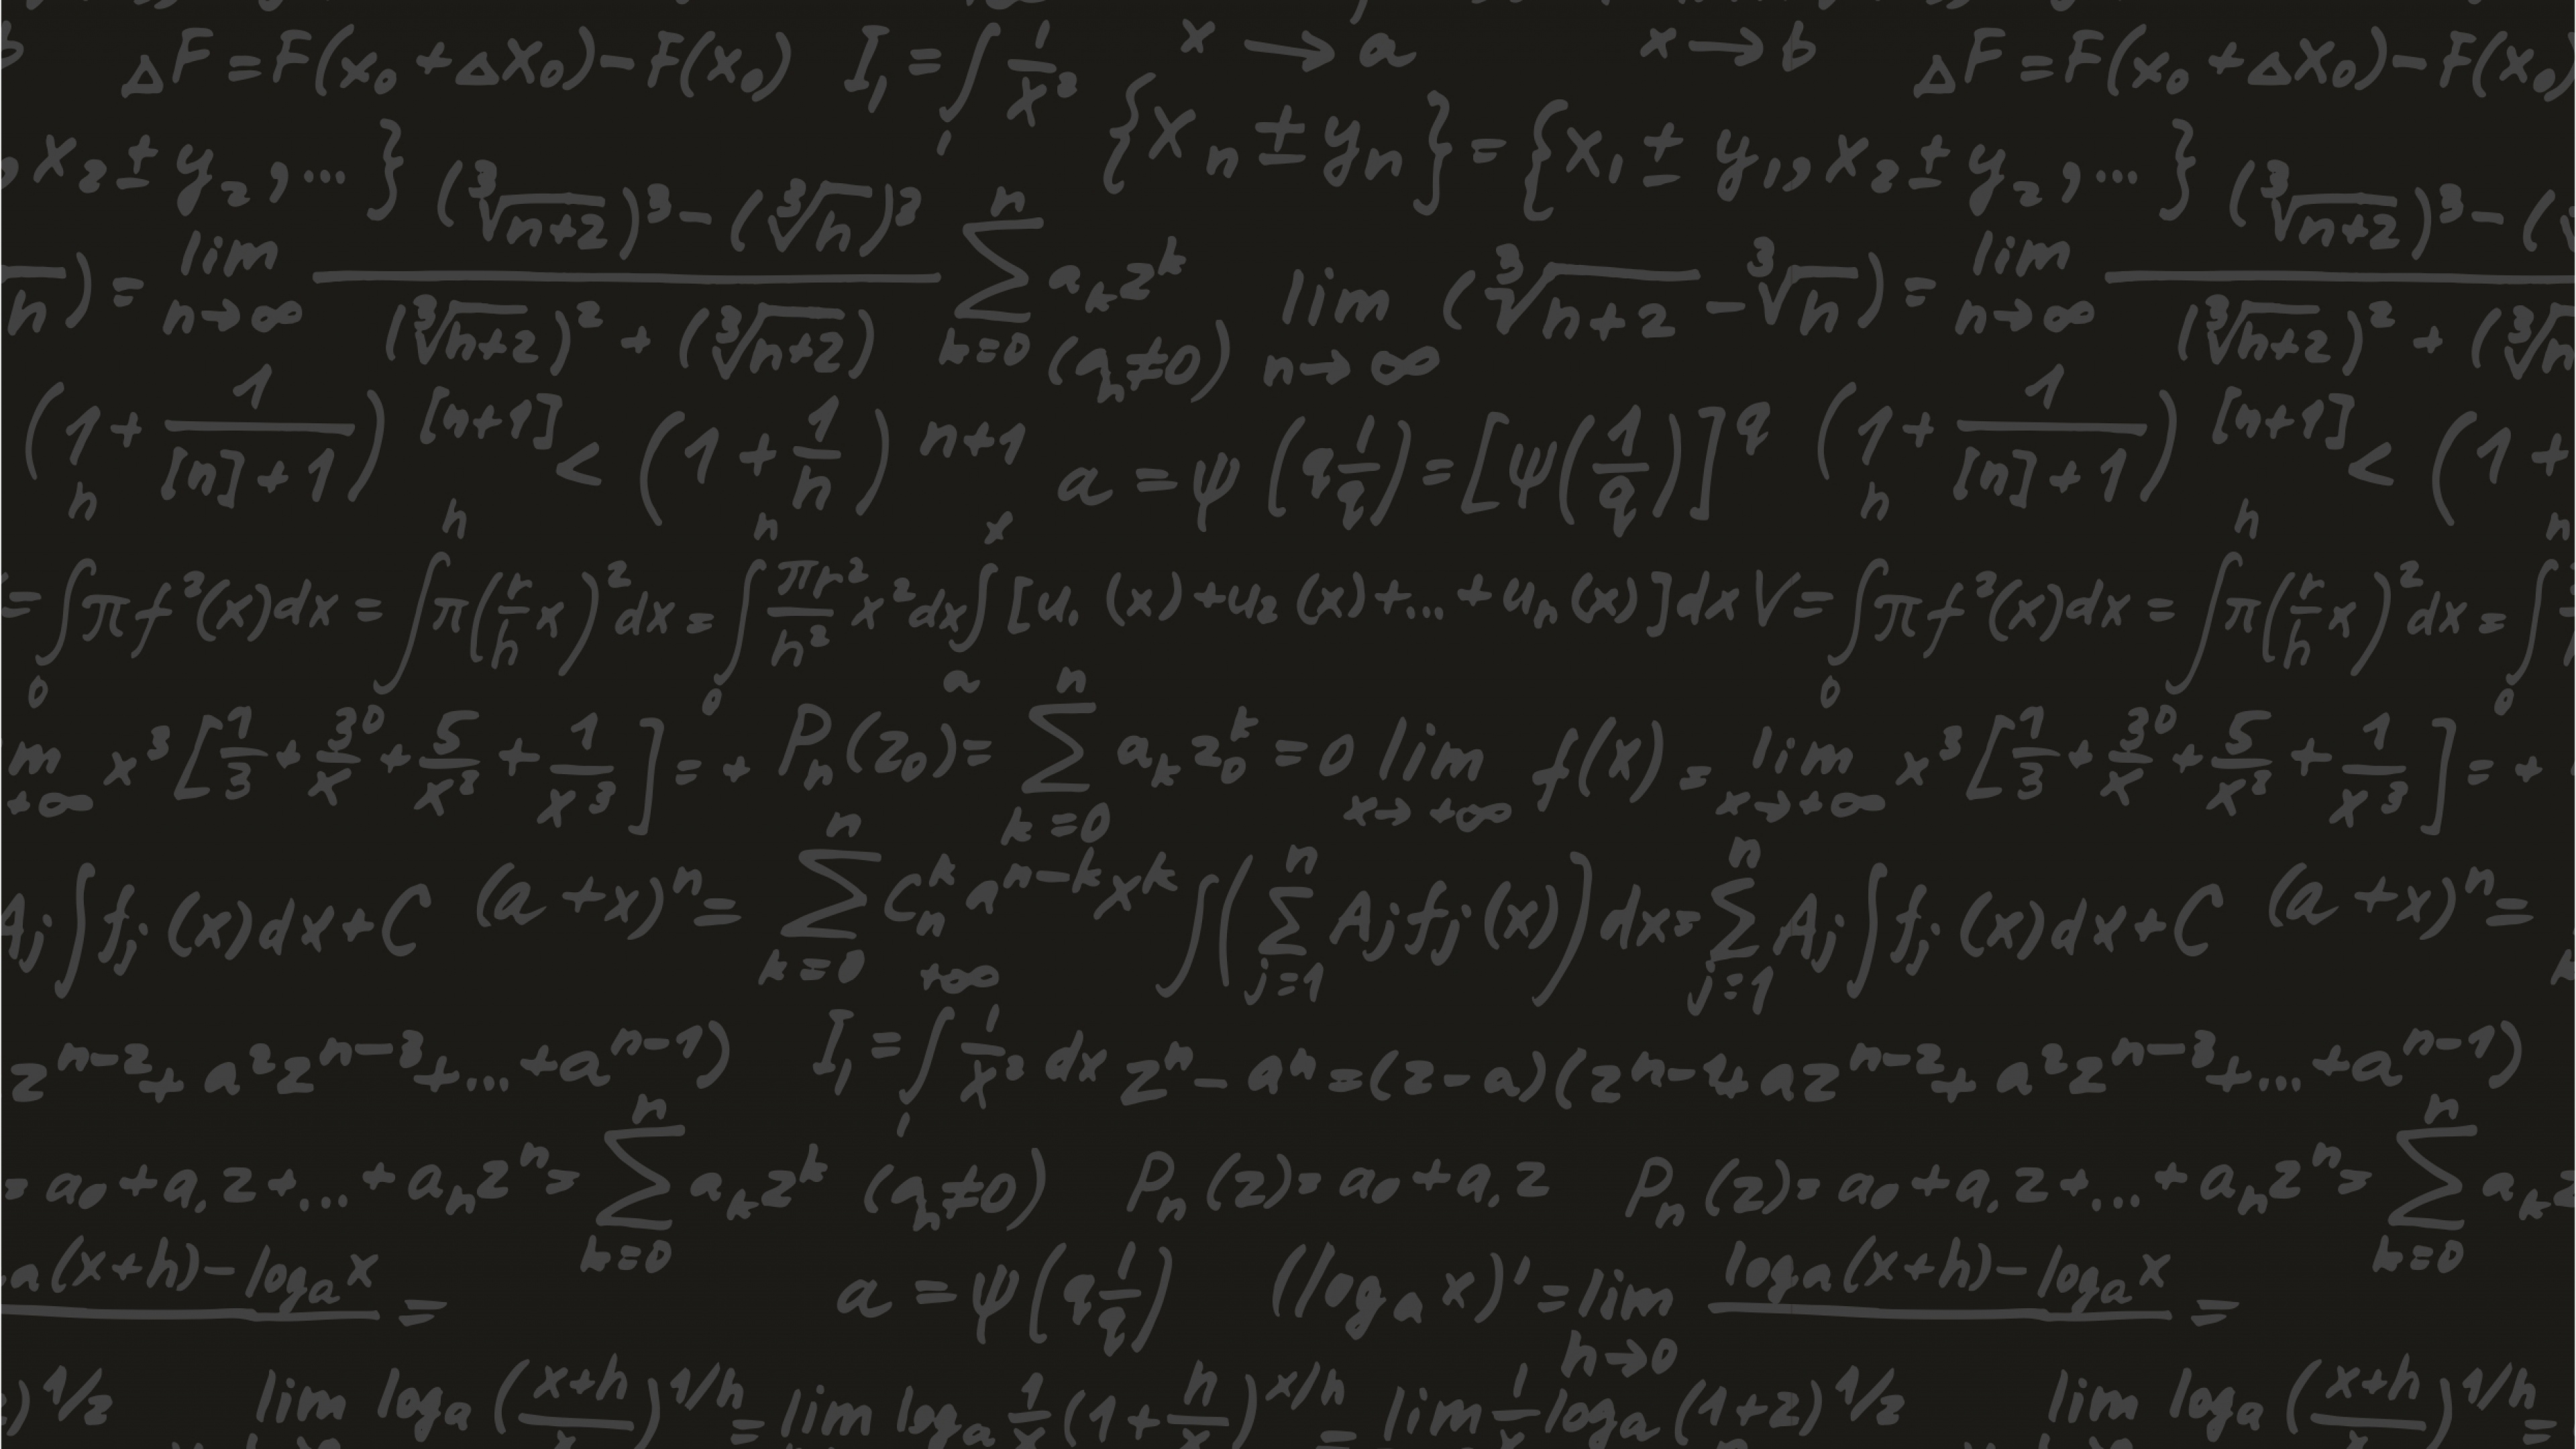 ΔF = F(x₀ + Δx₀) − F(x₀) I₁ = ∫₁ 1/x³ x → a x → b ΔF = F(x₀ + Δx₀) − F(x₀)
x₂ ± y₂, ... } {xₙ ± yₙ} = {x₁ ± y₁, x₂ ± y₂, ... }
h) = lim n→∞ ((∛(n+2))³ − (∛n)³)/((∛(n+2))² + (∛(n+2)) ∑ k=0 n aₖzᵏ (aₙ≠0) lim n→∞ (∛(n+2) − ∛n) = lim n→∞ (∛(n+2))³ − ( (∛(n+2))² + (
(1 + 1/([n]+1))^[n+1] < (1 + 1/n)^n+1 a = ψ(q 1/q) = [ψ(1/q)]^q (1 + 1/([n]+1))^[n+1] < (1 +
= ∫₀ʰ πf²(x)dx = ∫ʰ π(r/h x)²dx = ∫₀ʰ πr²/h² x²dx ∫ₐˣ [u₁(x) + u₂(x) + ... + uₙ(x)]dx V = ∫₀ʰ πf²(x)dx = ∫ʰ π(r/h x)²dx = ∫₀
+∞ x³[1/3 + 3⁰/x + 5/x² + 1/x³] = + Pₙ(z₀) = ∑ k=0 n aₖz₀ᵏ = 0 lim x→+∞ f(x) = lim x→+∞ x³[1/3 + 3⁰/x + 5/x² + 1/x³] = +
Aⱼ∫fⱼ(x)dx + C (a + x)ⁿ = ∑ k=0 n Cₙᵏ aⁿ⁻ᵏxᵏ ∫(∑ j=1 n Aⱼfⱼ(x))dx = ∑ j=1 n Aⱼ∫fⱼ(x)dx + C (a + x)ⁿ =
zⁿ⁻² + a²zⁿ⁻³ + ... + aⁿ⁻¹) I₁ = ∫₁ +∞ 1/x³ dx zⁿ − aⁿ = (z − a)(zⁿ⁻¹ + azⁿ⁻² + a²zⁿ⁻³ + ... + aⁿ⁻¹)
= a₀ + a₁z + ... + aₙzⁿ = ∑ k=0 n aₖzᵏ (aₙ≠0) Pₙ(z) = a₀ + a₁z Pₙ(z) = a₀ + a₁z + ... + aₙzⁿ = ∑ k=0 n aₖ
a(x+h) − logₐx = a = ψ(q 1/q) (logₐx)' = lim h→0 (logₐ(x+h) − logₐx) =
)1/2 lim logₐ((x+h)/x)^1/h = lim logₐ 1/x (1 + h/x)^x/h = lim 1/x logₐ(1+z)^1/2 lim logₐ((x+h)/x)^1/h =